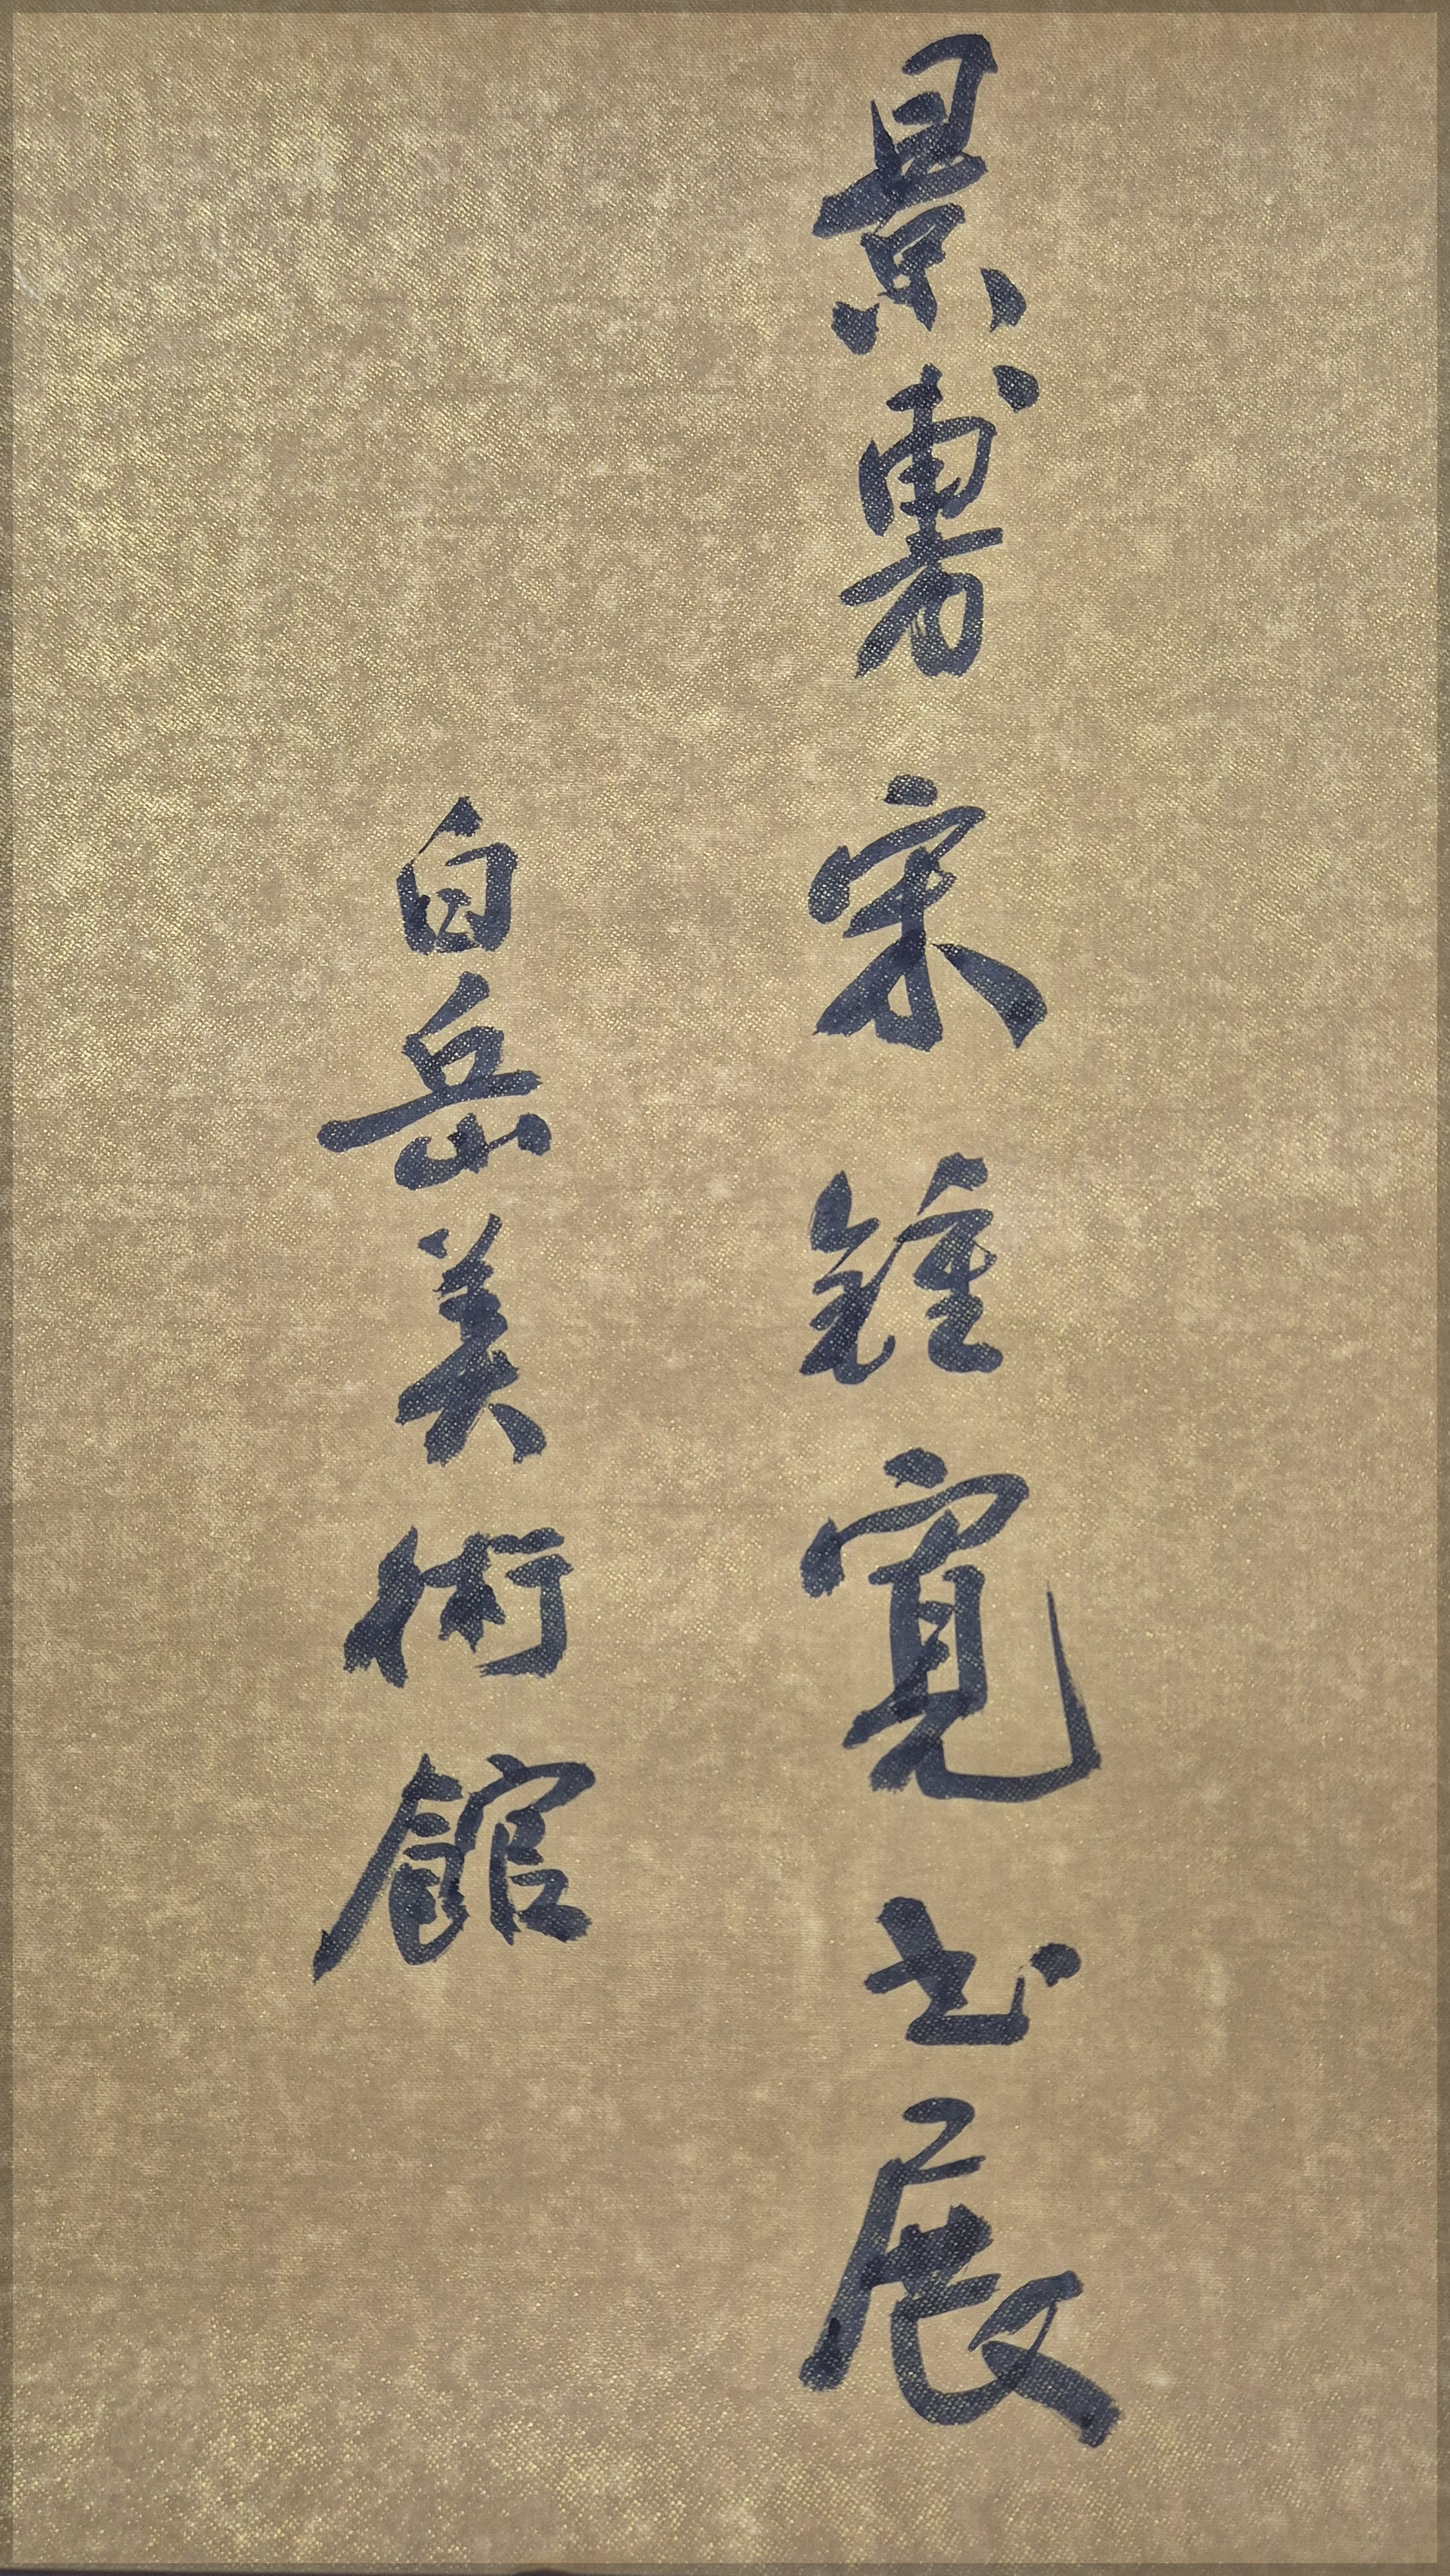 景旉 宋鍾寬書展
白岳美術館